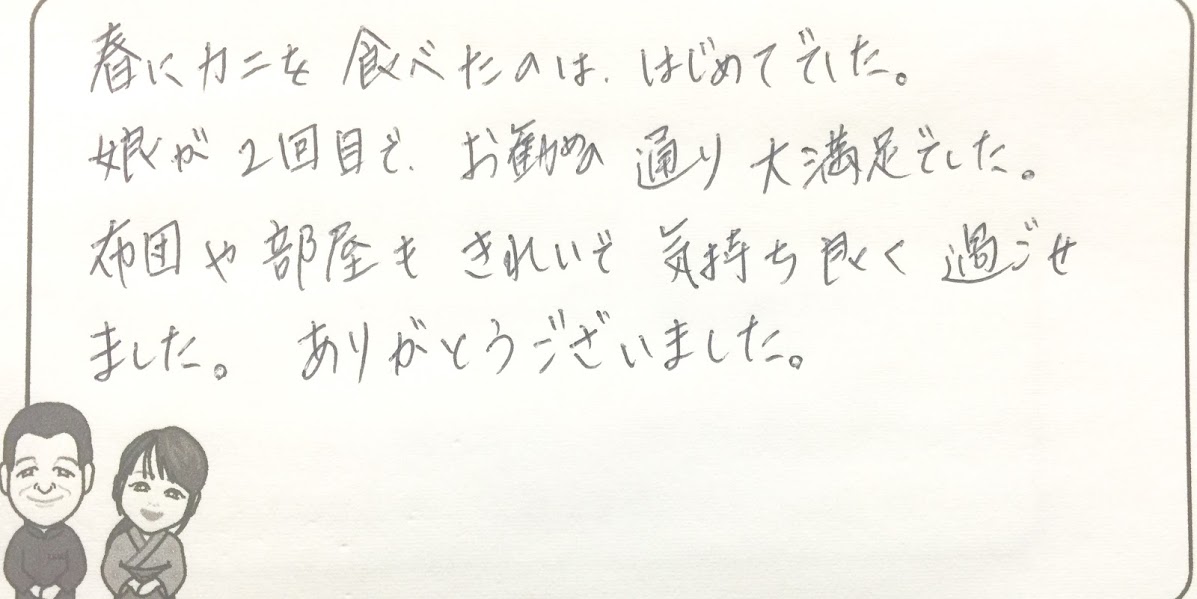 春にカニを食べたのは、はじめてでした。
娘が2回目で、お勧めの通り大満足でした。
布団や部屋もきれいで気持ち良く過ごせ
ました。ありがとうございました。